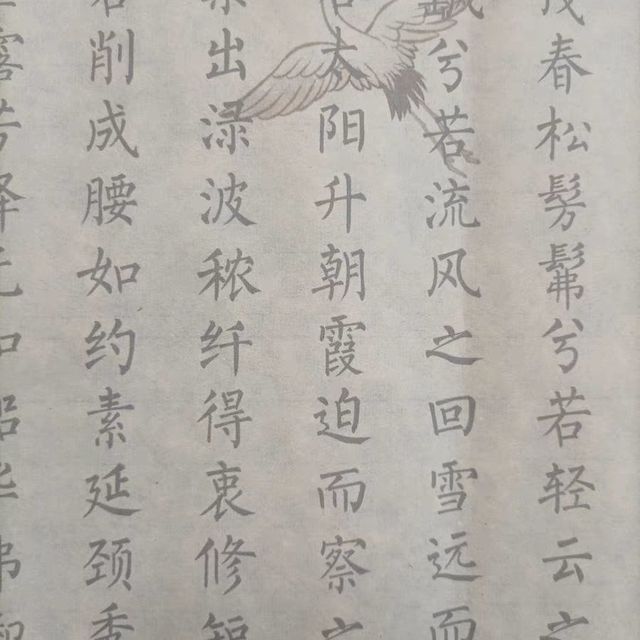 茂春松髣髴兮若轻云之
兮若流风之回雪远而
太阳升朝霞迫而察之
出渌波秾纤得衷修短
若削成腰如约素延颈秀